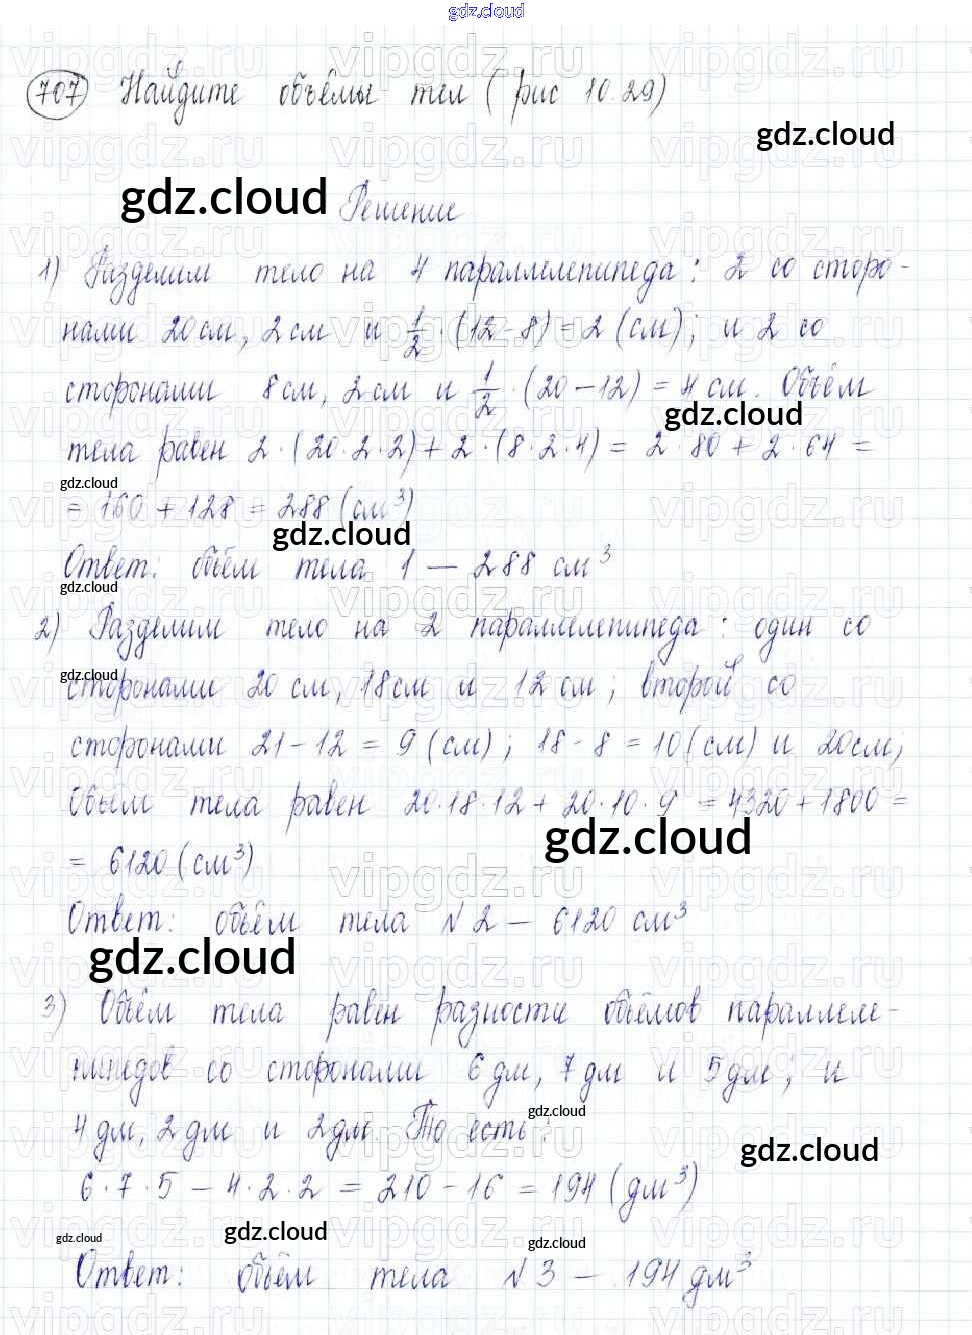 gdz.cloud
707 Найдите объёмы тел (рис 10.29)
gdz.cloud
gdz.cloud Решение
1) Разделим тело на 4 параллелепипеда: 2 со сторо-
нами 20 см, 2 см и 1/2 · (12 - 8) = 2 (см); и 2 со
сторонами 8 см, 2 см и 1/2 · (20 - 12) = 4 см. Объём
gdz.cloud
тела равен 2 · (20 · 2 · 2) + 2 · (8 · 2 · 4) = 2 · 80 + 2 · 64 =
gdz.cloud
= 160 + 128 = 288 (см³)
gdz.cloud
Ответ: объём тела 1 — 288 см³
gdz.cloud
2) Разделим тело на 2 параллелепипеда: один со
gdz.cloud
сторонами 20 см, 18 см и 12 см; второй со
сторонами 21 - 12 = 9 (см); 18 - 8 = 10 (см) и 20 см;
Объём тела равен 20 · 18 · 12 + 20 · 10 · 9 = 4320 + 1800 =
gdz.cloud
= 6120 (см³)
Ответ: объём тела N 2 — 6120 см³
gdz.cloud
3) Объём тела равен разности объёмов параллеле-
пипедов со сторонами 6 дм, 7 дм и 5 дм; и
gdz.cloud
4 дм, 2 дм и 2 дм. То есть:
gdz.cloud
6 · 7 · 5 - 4 · 2 · 2 = 210 - 16 = 194 (дм³)
gdz.cloud gdz.cloud gdz.cloud
Ответ: объём тела N 3 — 194 дм³
vipgdz.ru vipgdz.ru vipgdz.ru